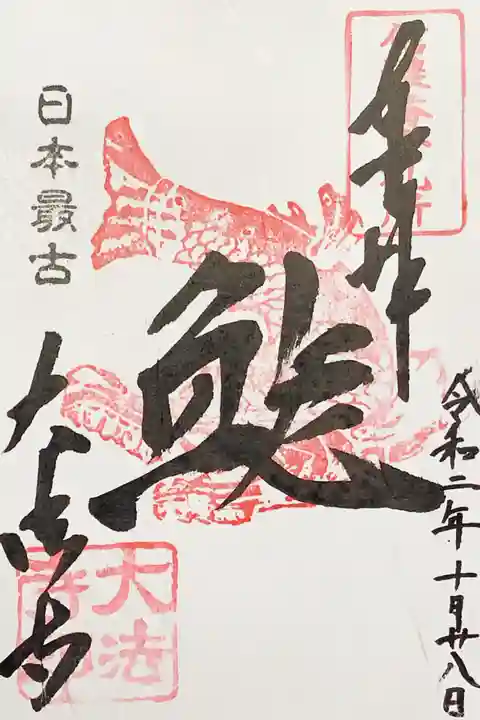 奉拝
令和二年十月廿八日
鯱
日本最古
大法寺
大法